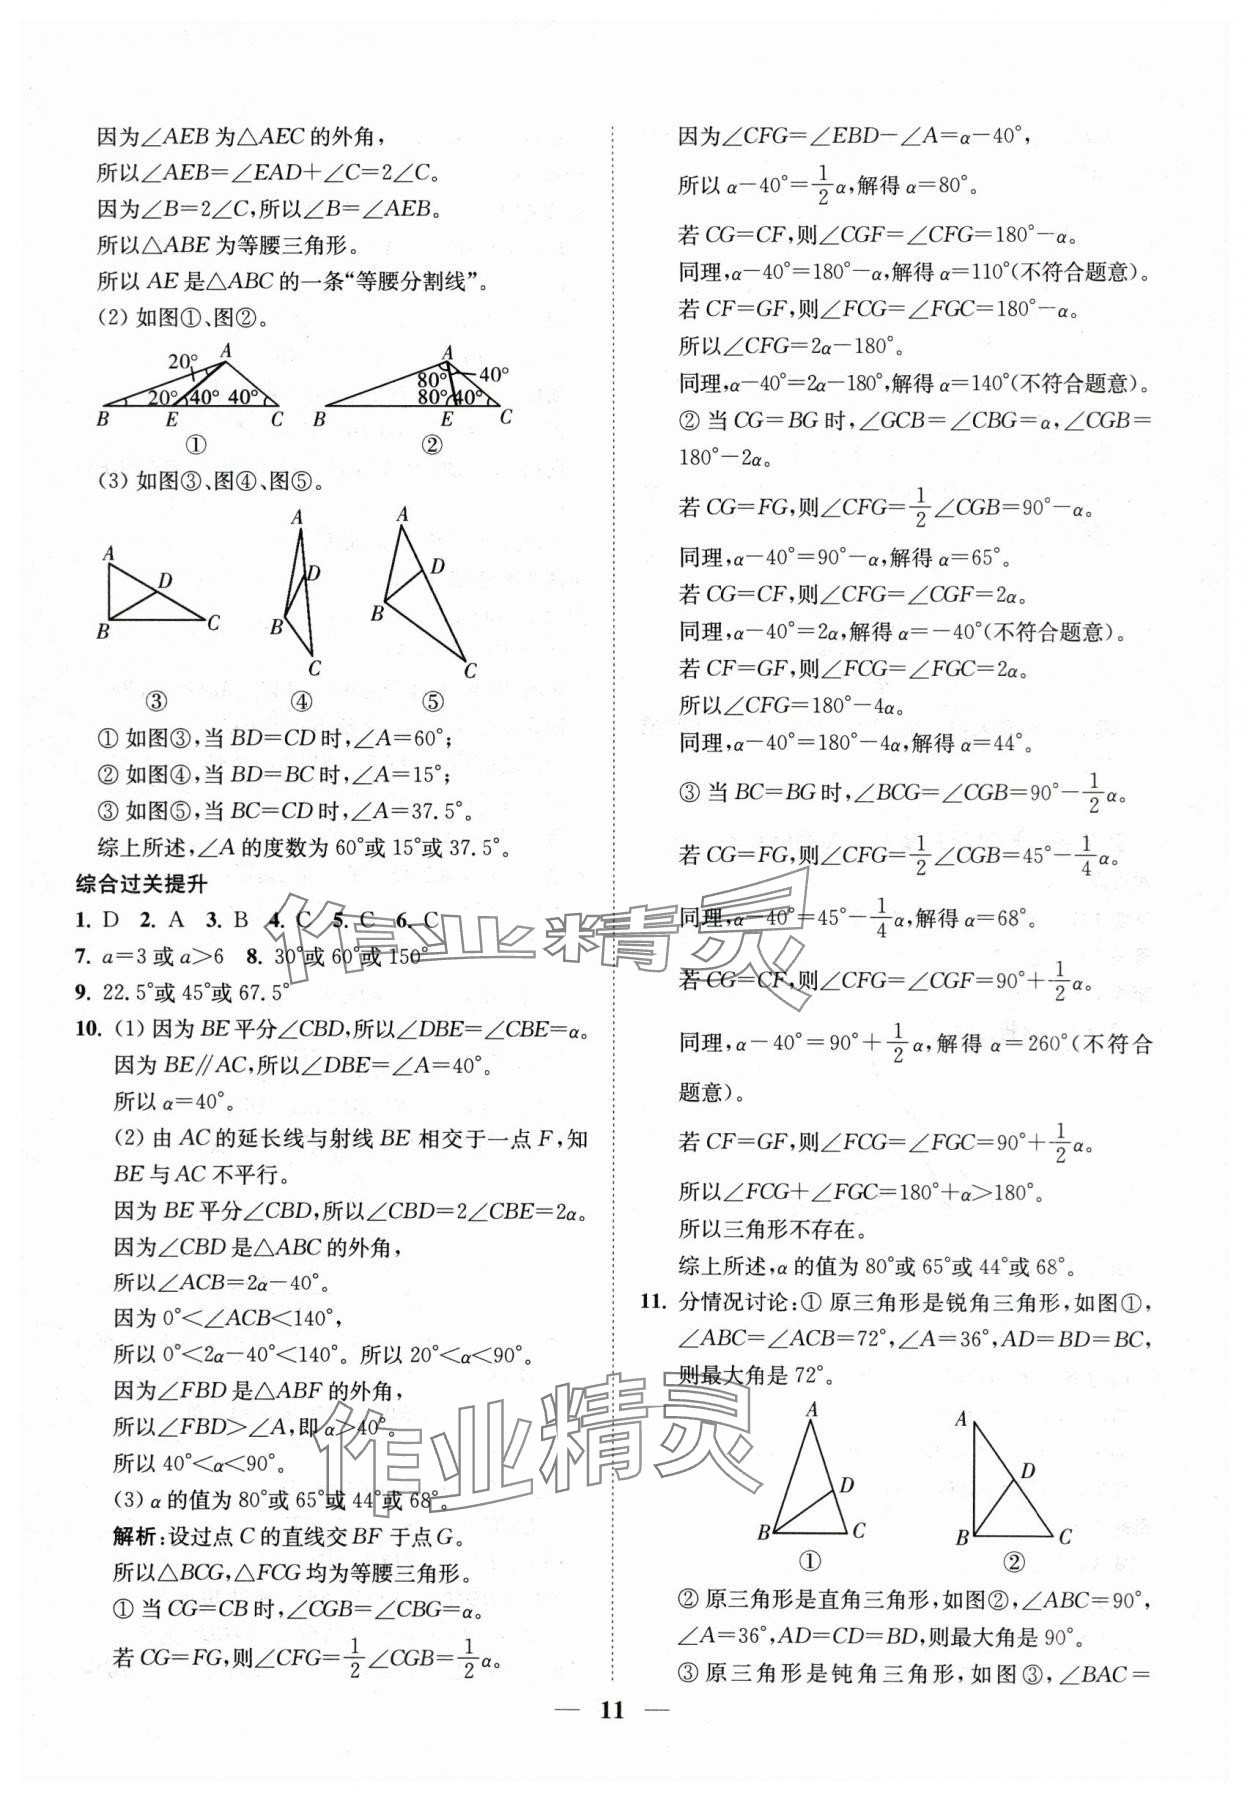 因为∠AEB为△AEC的外角,
所以∠AEB=∠EAD+∠C=2∠C。
因为∠B=2∠C,所以∠B=∠AEB。
所以△ABE为等腰三角形。
所以AE是△ABC的一条“等腰分割线”。
(2) 如图①、图②。
A 20° 20° 40° 40° B E C ①
A 80° 40° 80° 40° B E C ②
(3) 如图③、图④、图⑤。
A D B C ③
A D B C ④
A D B C ⑤
① 如图③,当BD=CD时,∠A=60°;
② 如图④,当BD=BC时,∠A=15°;
③ 如图⑤,当BC=CD时,∠A=37.5°。
综上所述,∠A的度数为60°或15°或37.5°。
综合过关提升
1. D 2. A 3. B 4. C 5. C 6. C
7. a=3或a>6 8. 30°或60°或150°
9. 22.5°或45°或67.5°
10. (1) 因为BE平分∠CBD,所以∠DBE=∠CBE=α。
因为BE∥AC,所以∠DBE=∠A=40°。
所以α=40°。
(2) 由AC的延长线与射线BE相交于一点F,知
BE与AC不平行。
因为BE平分∠CBD,所以∠CBD=2∠CBE=2α。
因为∠CBD是△ABC的外角,
所以∠ACB=2α-40°。
因为0°<∠ACB<140°,
所以0°<2α-40°<140°。所以20°<α<90°。
因为∠FBD是△ABF的外角,
所以∠FBD>∠A,即α>40°。
所以40°<α<90°。
(3) α的值为80°或65°或44°或68°。
解析:设过点C的直线交BF于点G。
所以△BCG,△FCG均为等腰三角形。
① 当CG=CB时,∠CGB=∠CBG=α。
若CG=FG,则∠CFG=1/2∠CGB=1/2α。
因为∠CFG=∠EBD-∠A=α-40°,
所以α-40°=1/2α,解得α=80°。
若CG=CF,则∠CGF=∠CFG=180°-α。
同理,α-40°=180°-α,解得α=110°(不符合题意)。
若CF=GF,则∠FCG=∠FGC=180°-α。
所以∠CFG=2α-180°。
同理,α-40°=2α-180°,解得α=140°(不符合题意)。
② 当CG=BG时,∠GCB=∠CBG=α,∠CGB=
180°-2α。
若CG=FG,则∠CFG=1/2∠CGB=90°-α。
同理,α-40°=90°-α,解得α=65°。
若CG=CF,则∠CFG=∠CGF=2α。
同理,α-40°=2α,解得α=-40°(不符合题意)。
若CF=GF,则∠FCG=∠FGC=2α。
所以∠CFG=180°-4α。
同理,α-40°=180°-4α,解得α=44°。
③ 当BC=BG时,∠BCG=∠CGB=90°-1/2α。
若CG=FG,则∠CFG=1/2∠CGB=45°-1/4α。
同理,α-40°=45°-1/4α,解得α=68°。
若CG=CF,则∠CFG=∠CGF=90°+1/2α。
同理,α-40°=90°+1/2α,解得α=260°(不符合
题意)。
若CF=GF,则∠FCG=∠FGC=90°+1/2α。
所以∠FCG+∠FGC=180°+α>180°。
所以三角形不存在。
综上所述,α的值为80°或65°或44°或68°。
11. 分情况讨论:① 原三角形是锐角三角形,如图①,
∠ABC=∠ACB=72°,∠A=36°,AD=BD=BC,
则最大角是72°。
A D B C ①
A D B C ②
② 原三角形是直角三角形,如图②,∠ABC=90°,
∠A=36°,AD=CD=BD,则最大角是90°。
③ 原三角形是钝角三角形,如图③,∠BAC=
— 11 —
作业精灵
作业精灵